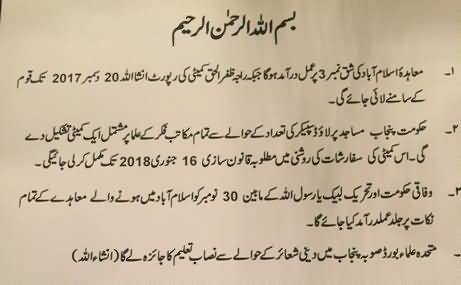 بسم اللہ الرحمٰن الرحیم
۱۔ معاہدۂ اسلام آباد کی شق نمبر 3 پر عمل درآمد ہوگا جبکہ راجہ ظفر الحق کمیٹی کی رپورٹ انشااللہ 20 دسمبر 2017 تک قوم
کے سامنے لائی جائے گی۔
۲۔ حکومت پنجاب مساجد پر لاؤڈ سپیکر کی تعداد کے حوالے سے تمام مکاتب فکر کے علما پر مشتمل ایک کمیٹی تشکیل دے
گی۔ اس کمیٹی کی سفارشات کی روشنی میں مطلوبہ قانون سازی 16 جنوری 2018 تک مکمل کر لی جائیگی۔
۳۔ وفاقی حکومت اور تحریک لبیک یا رسول اللہ کے مابین 30 نومبر کو اسلام آباد میں ہونے والے معاہدے کے تمام
نکات پر جلد عملدرآمد کیا جائے گا۔
۴۔ متحدہ علماء بورڈ صوبہ پنجاب میں دینی شعائر کے حوالے سے نصاب تعلیم کا جائزہ لے گا (انشاء اللہ)